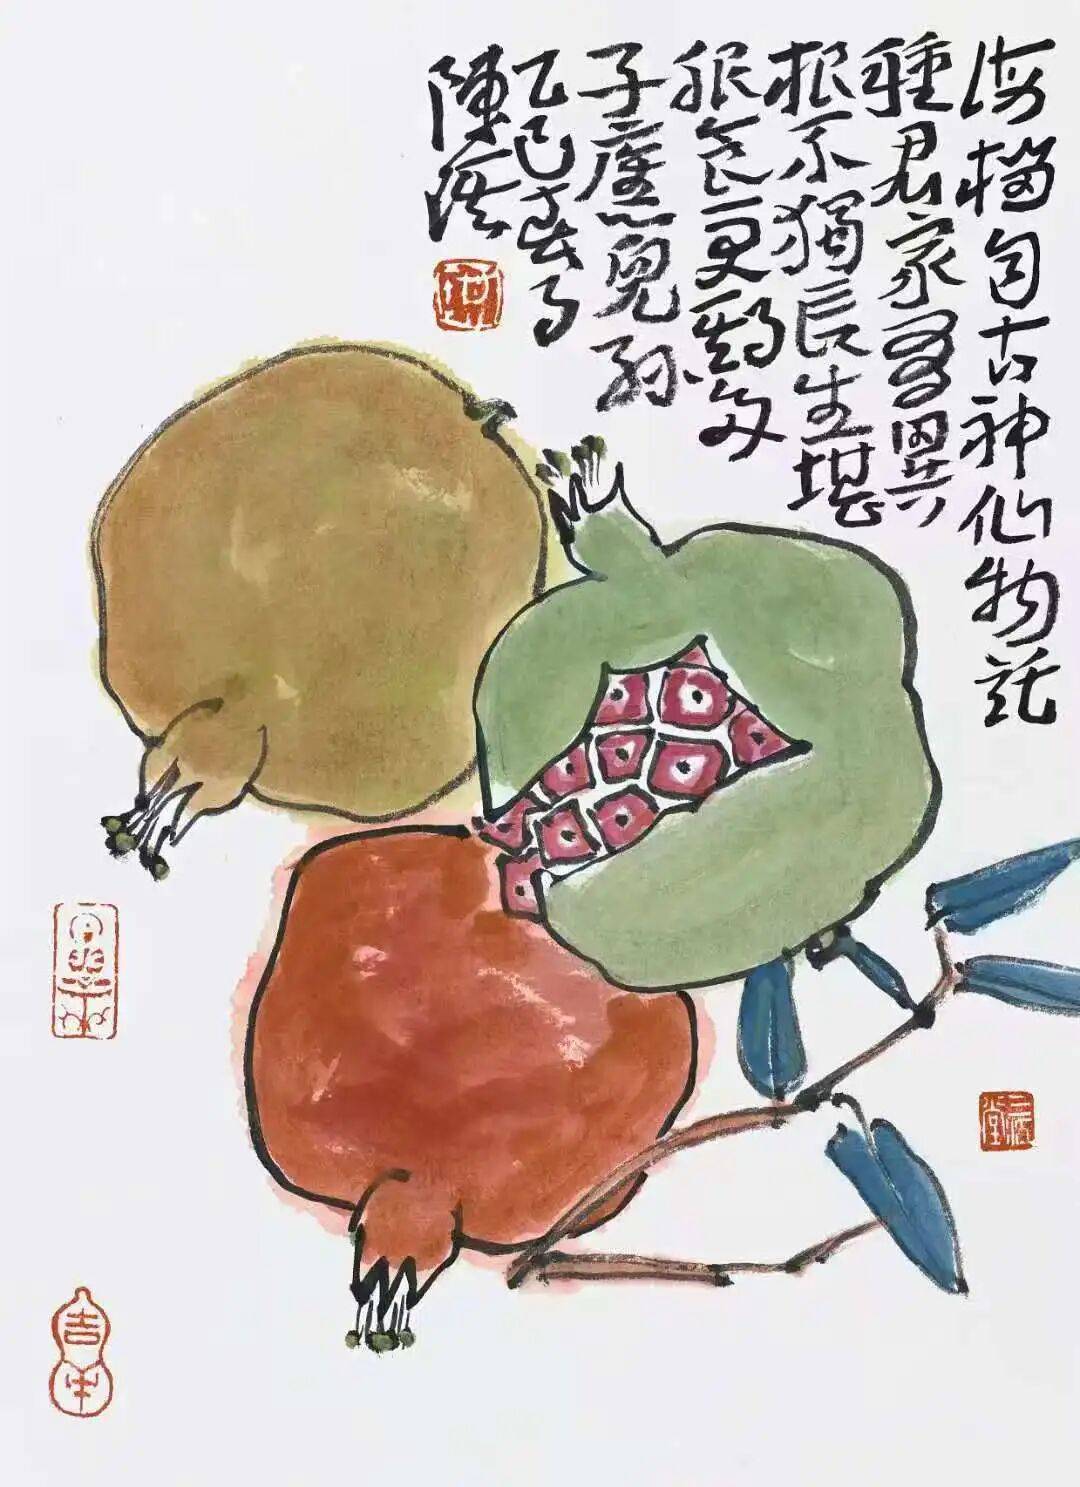 海榴自古神仙物託
種君家異
根不獨長生堪
服食更多
子應兒孫
乙巳春
陳
吉
堂